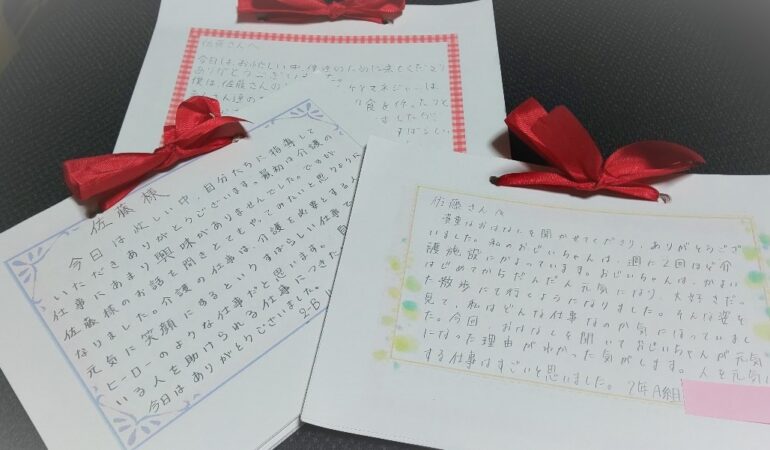 佐藤さんへ
今日は、おいそがしい中、僕達のために来てくださり
ありがとうございました。
僕は、佐藤さんの
食を作ったりと
ました。
すばらしい
佐藤様
今日は忙しい中、自分たちに指導して
いただきありがとうございます。最初は介護の
仕事にあまり興味がありませんでした。ですが、
佐藤様のお話を聞きとてもやってみたいと思うように
なりました。介護の仕事は、介護を必要とする人を
元気に笑顔にするというすばらしい仕事で
ヒーローのような仕事だと思います。
いる人を助けられる仕事につきた
今日はありがとうございました。 2-B
佐藤さんへ
貴重なおはなしを聞かせてくださり、ありがとうござ
いました。私のおじいちゃんは、週に2回ほど介
護施設にかよっています。おじいちゃんは、かよい
はじめてからだんだん元気になり、大好きだっ
た散歩にも行くようになりました。そんな姿を
見て、私はどんな仕事なのか気になっていまし
た。今回、おはなしを聞いておじいちゃんが元気
になった理由がわかった気がします。人を元気に
する仕事はすごいと思いました。 2年A組